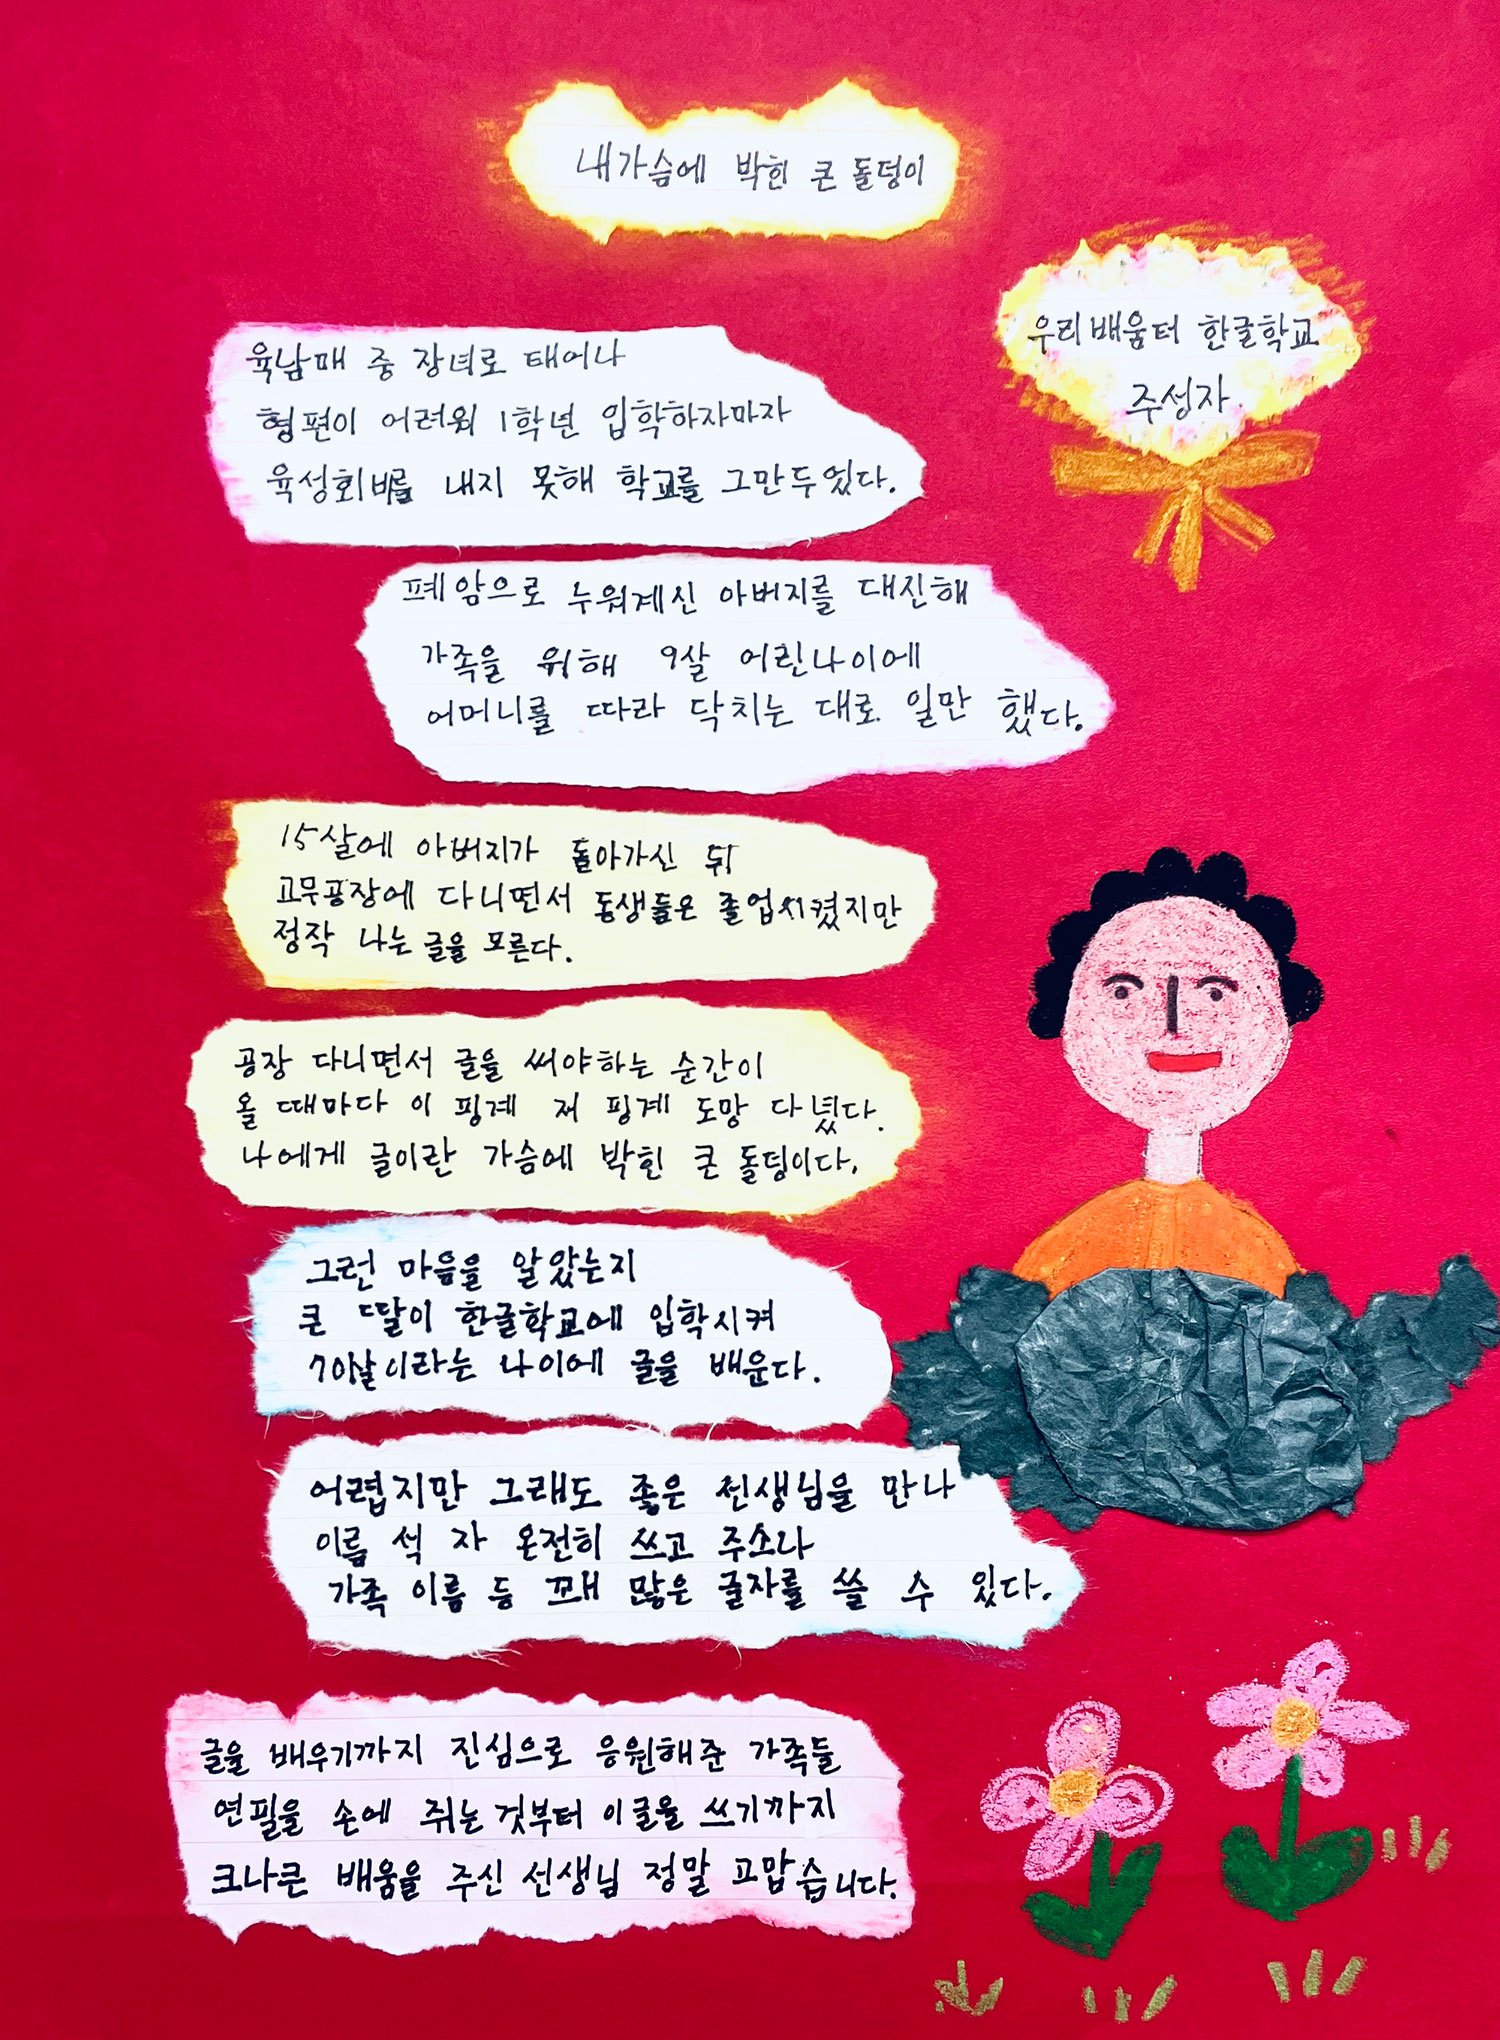 내가슴에 박힌 큰 돌덩이
우리배움터 한글학교
주성자
육남매 중 장녀로 태어나
형편이 어려워 1학년 입학하자마자
육성회비를 내지 못해 학교를 그만두었다.
폐암으로 누워계신 아버지를 대신해
가족을 위해 9살 어린나이에
어머니를 따라 닥치는 대로 일만 했다.
15살에 아버지가 돌아가신 뒤
고무공장에 다니면서 동생들은 졸업시켰지만
정작 나는 글을 모른다.
공장 다니면서 글을 써야하는 순간이
올 때마다 이 핑계 저 핑계 도망 다녔다.
나에게 글이란 가슴에 박힌 큰 돌덩이다.
그런 마음을 알았는지
큰 딸이 한글학교에 입학시켜
70살이라는 나이에 글을 배운다.
어렵지만 그래도 좋은 선생님을 만나
이름 석 자 온전히 쓰고 주소나
가족 이름 등 꽤 많은 글자를 쓸 수 있다.
글을 배우기까지 진심으로 응원해준 가족들
연필을 손에 쥐는 것부터 이글을 쓰기까지
크나큰 배움을 주신 선생님 정말 고맙습니다.